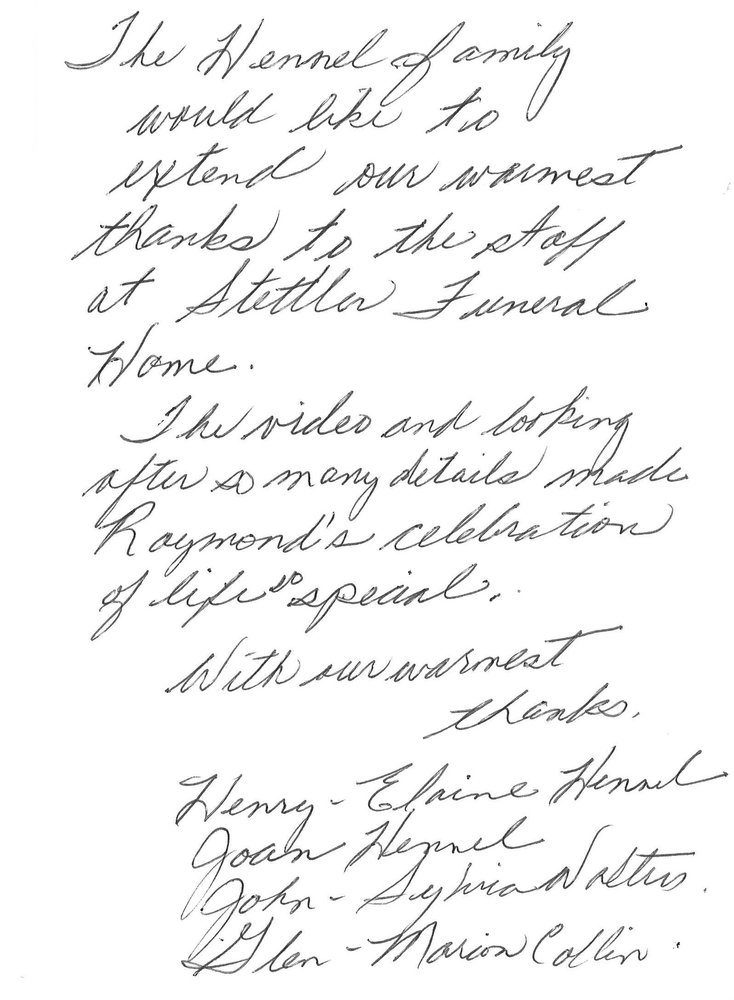 The Hennel family
would like to
extend our warmest
thanks to the staff
at Stettler Funeral
Home.
The video and looking
after so many details made
Raymond's celebration
of life so special.
With our warmest
thanks.
Henry - Elaine Hennel
Joan Hennel
John - Sylvia Walters.
Glen - Marion Collin.